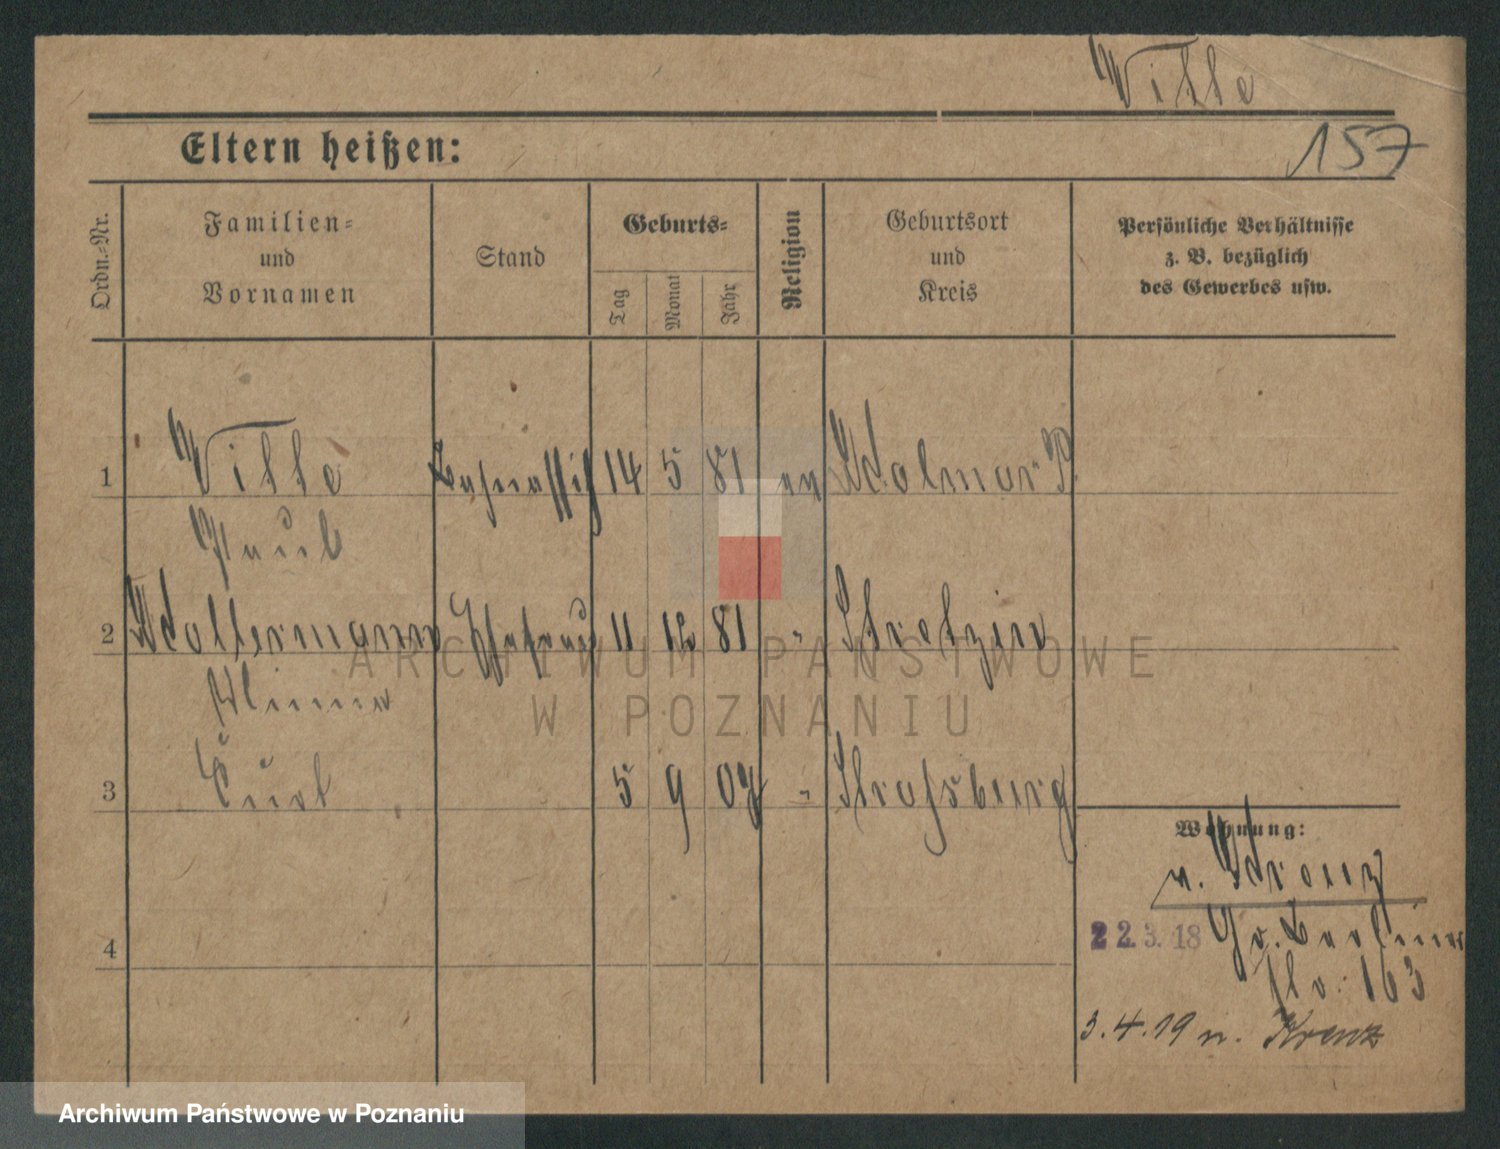 Wille
Eltern heißen:
157
Ordn.-Nr.
Familien-
und
Vornamen
Stand
Geburts-
Tag
Monat
Jahr
Religion
Geburtsort
und
Kreis
Persönliche Verhältnisse
z. B. bezüglich
des Gewerbes usw.
1 Wille 14 5 81 ev Kolmar P.
Paul
2 Kollermann Ehefrau 11 12 81 "
Minna
3 Curt 5 9 07 " Strassburg
Wohnung:
n. Kreuz
22.3.18 Gr. Berliner
str. 163
4
3.4.19 n. Kreuz
ARCHIWUM PAŃSTWOWE
W POZNANIU
Archiwum Państwowe w Poznaniu